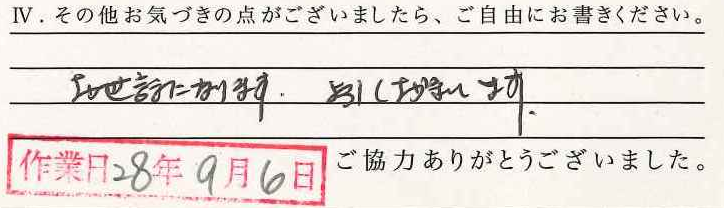 Ⅳ．その他お気づきの点がございましたら、ご自由にお書きください。
お世話になります．宜しくお願いします．
ご協力ありがとうございました。
作業日28年9月6日